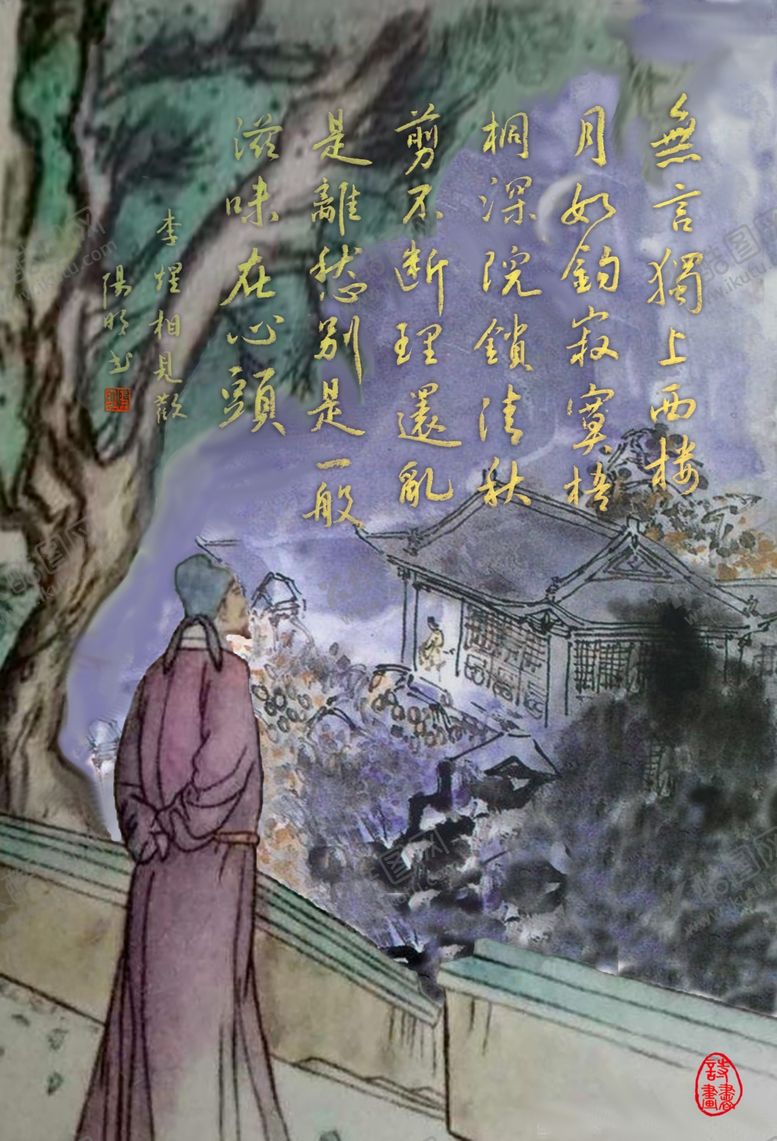 無言獨上西楼
月如鈎寂寞梧
桐深院鎖清秋
剪不断理還亂
是離愁別是一般
滋味在心頭
李煜相見歡
陽明书
詩書畫